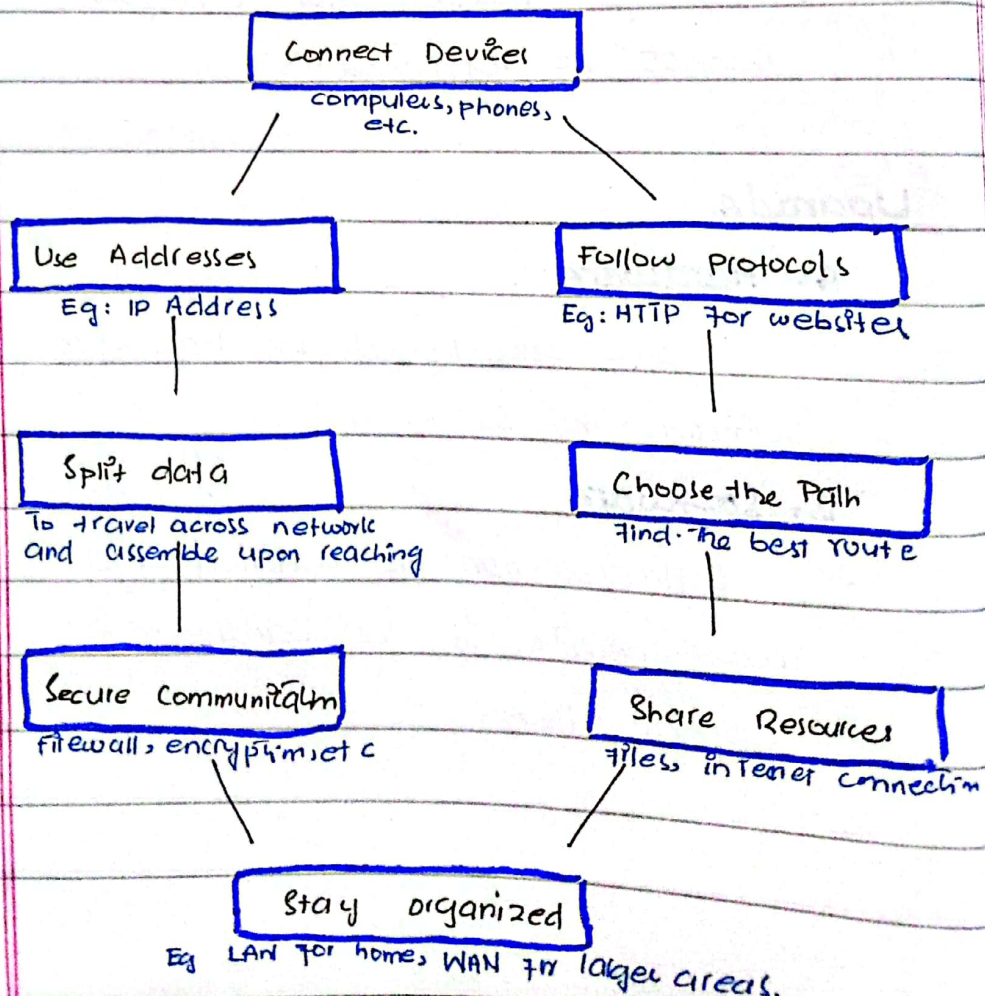 Connect Devices
computers, phones,
etc.
Use Addresses
Eg: IP Address
Follow protocols
Eg: HTTP for websites
Split data
To travel across network
and assemble upon reaching
Choose the Path
Find the best route
Secure Communication
firewall, encryption, etc
Share Resources
Files, internet connection
Stay organized
Eg LAN for home, WAN for larger areas.